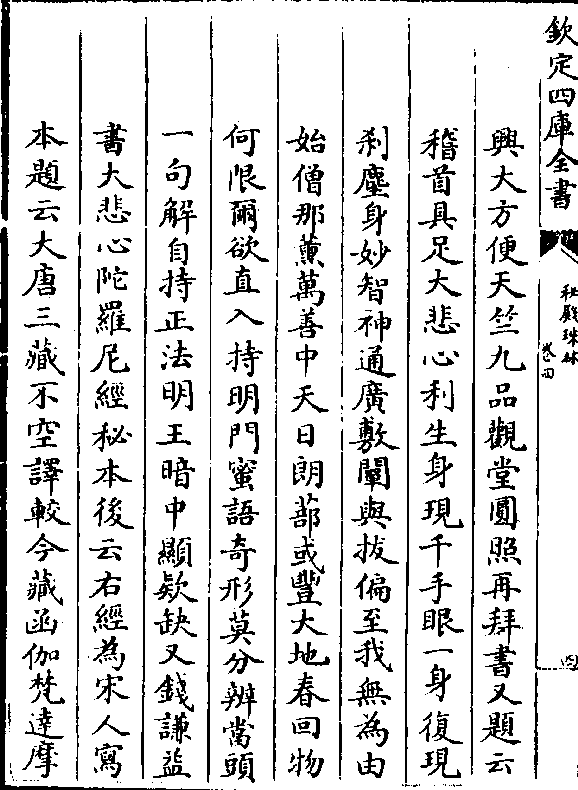 欽定四庫全書
祕殿珠林
卷四
四
興大方便天竺九品觀堂圓照再拜書又題云
稽首具足大悲心利生身現千手眼一身復現
剎塵身妙智神通廣敷闡與拔偏至我無為由
始僧那薰萬善中天日朗蔀或豐大地春回物
何限爾欲直入持明門蜜語奇形莫分辨當頭
一句解自持正法明王暗中顯欵缺又錢謙益
書大悲心陀羅尼經秘本後云右經為宋人寫
本題云大唐三藏不空譯較今藏函伽梵達摩